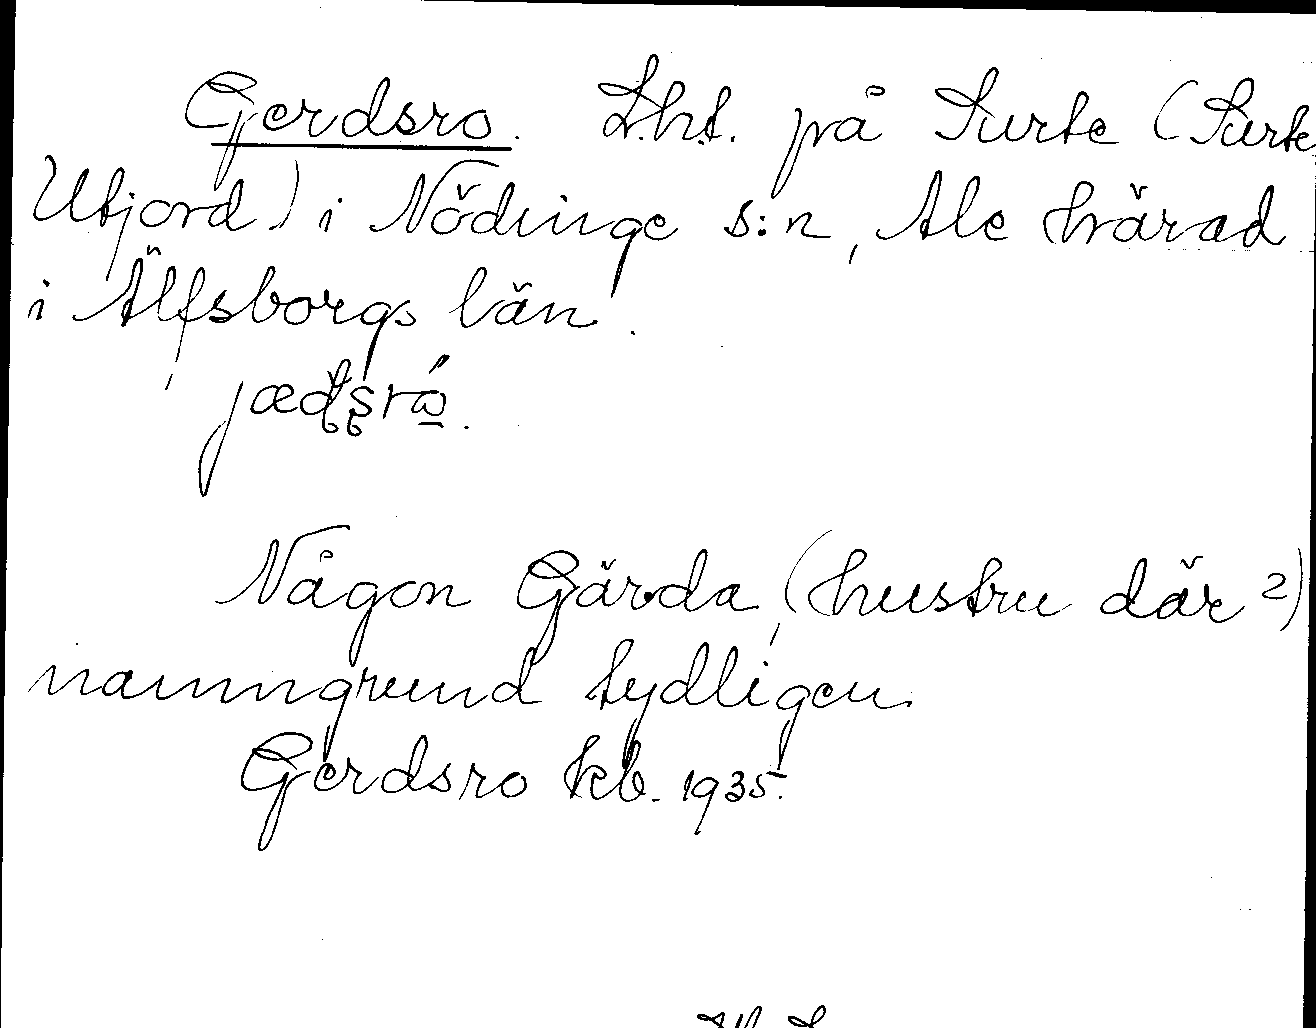 Gerdsro. Lht. på Surte (Surte
Utjord) i Nödinge s:n, Ale härad
i Älfsborgs län.
Någon Gärda, (hustru där?)
namngrund tydligen.
Gerdsro kb. 1935.